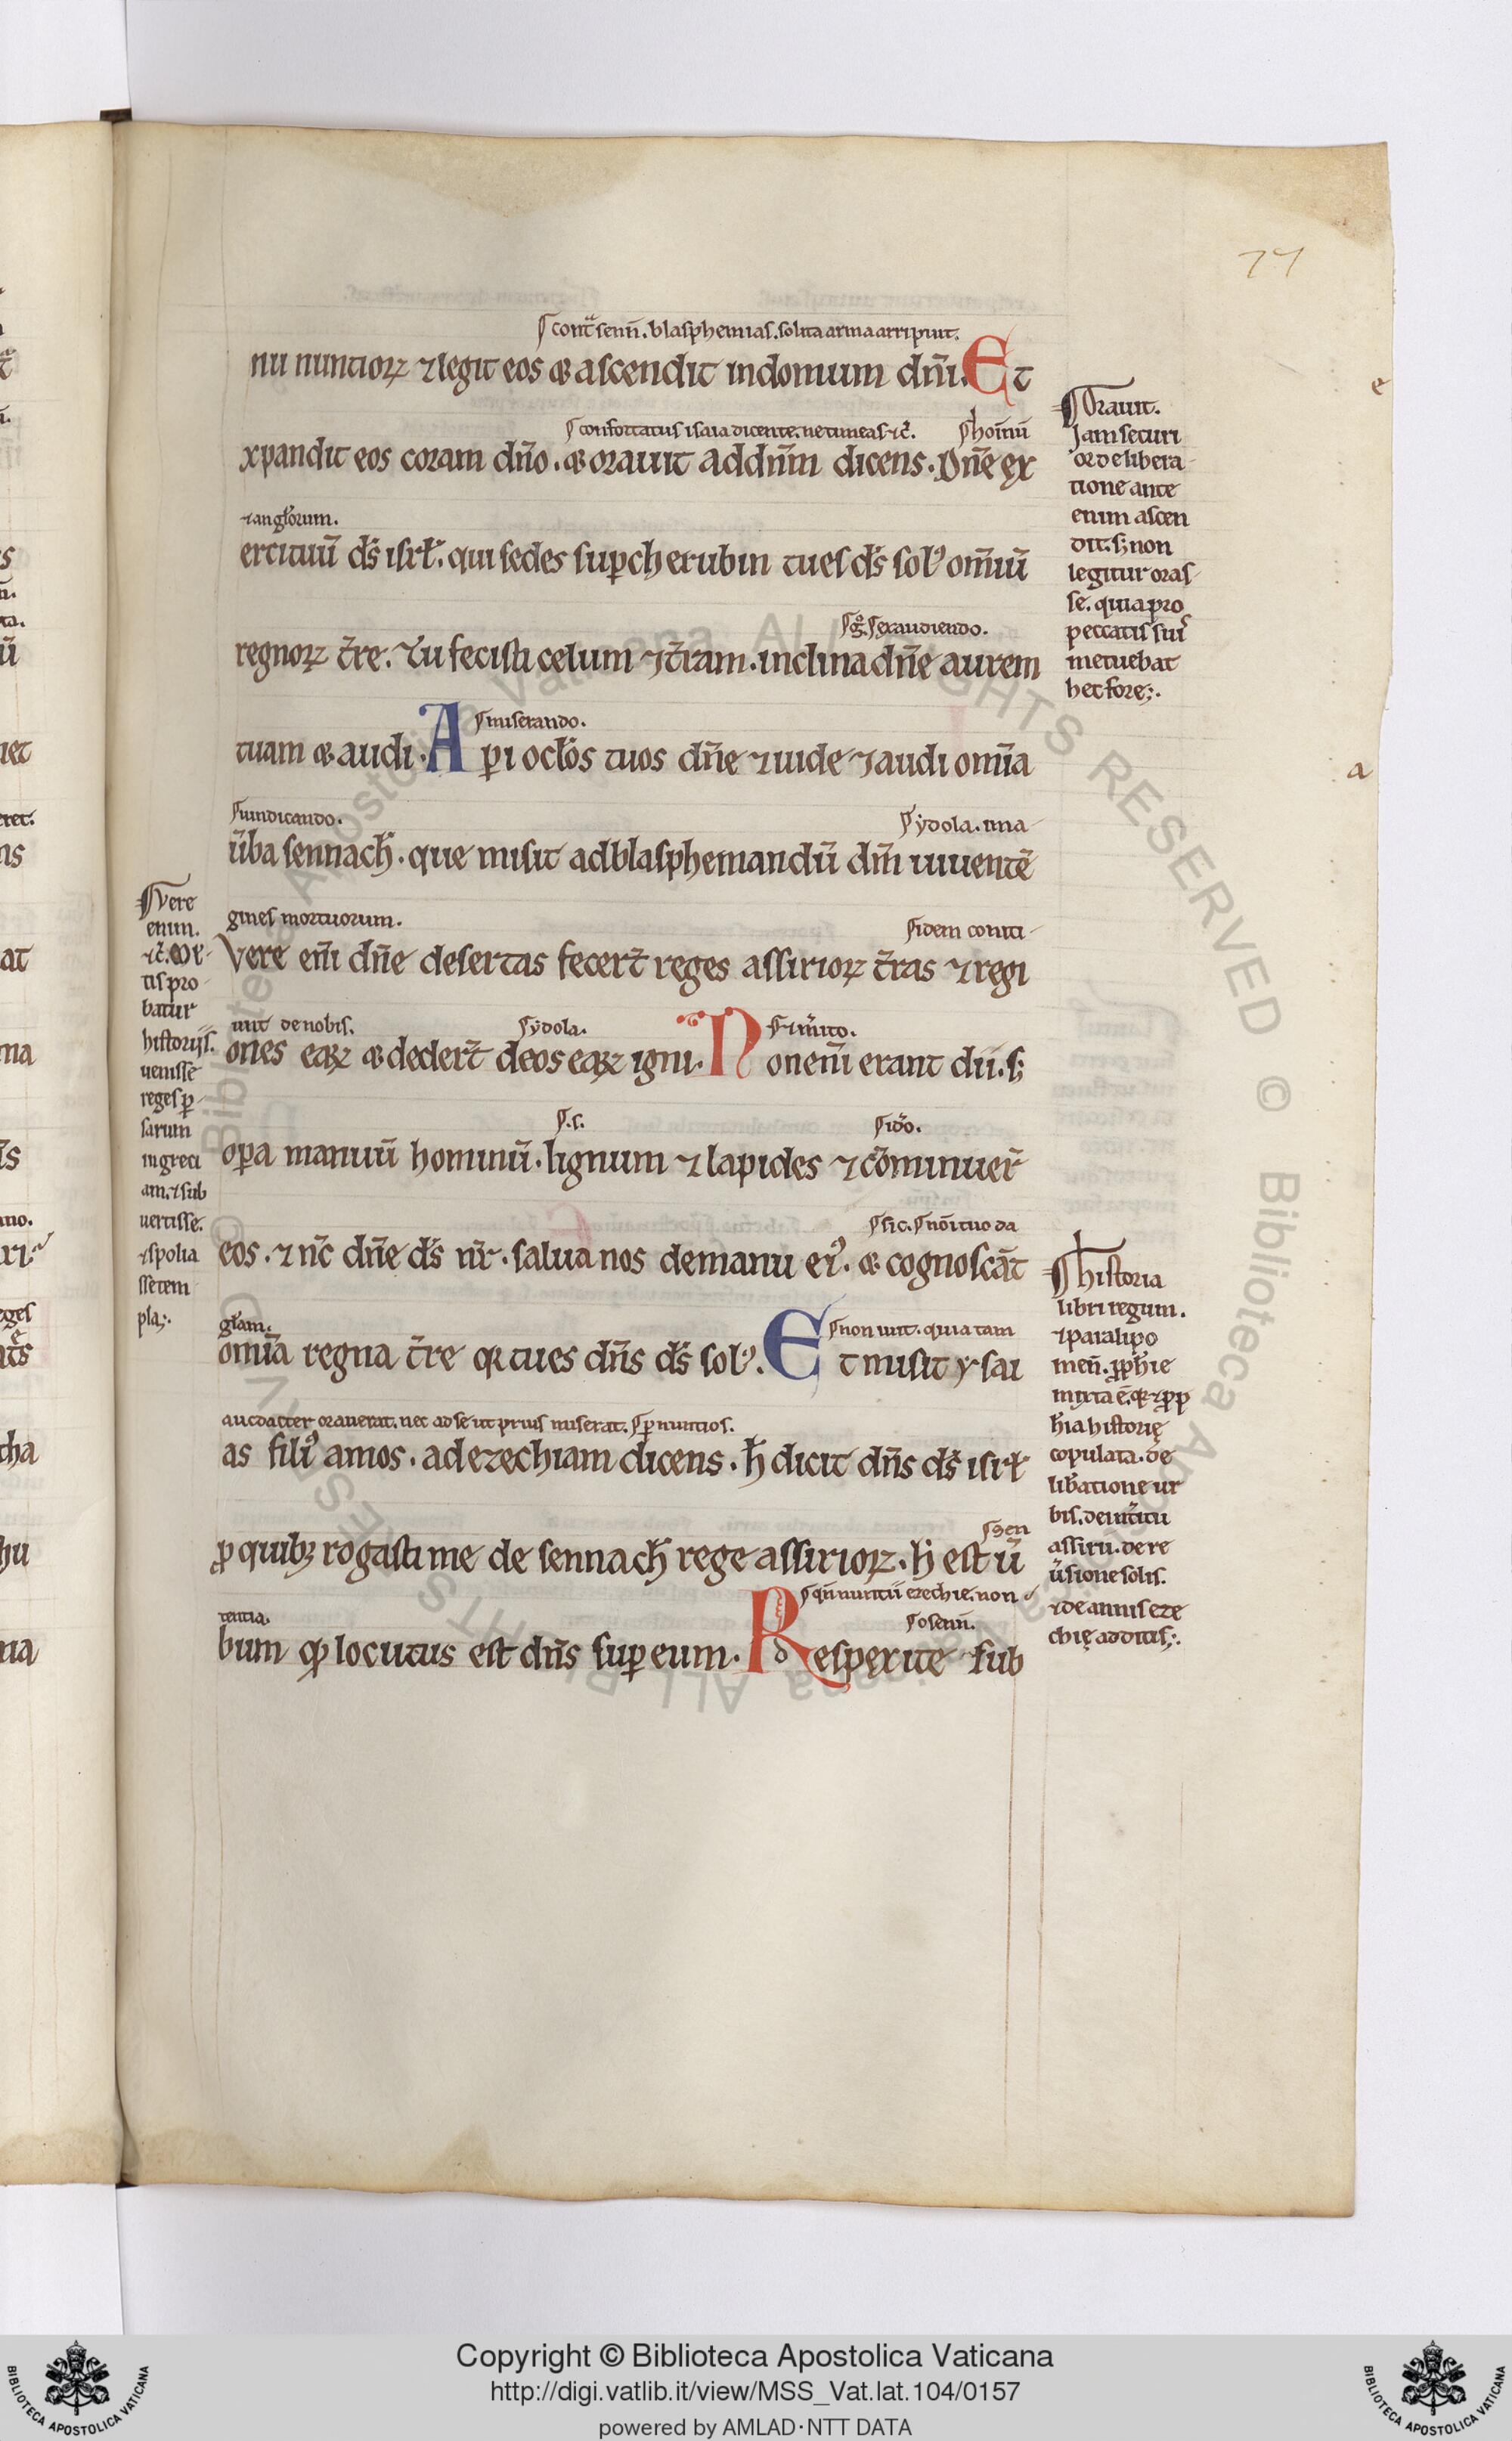 77
¶ contᵃ senn̄. blasphemias. solita arma arripiuit.
nu nuntioꝝ ⁊ legit eos & ascendit indomum dn̄i. Et
¶ confortatus isaia dicente. ne timeas ⁊c̄. ¶ hoīnū
xpandit eos coram dn̄o. & orauit addn̄m dicens. Dn̄e ex
⁊ angl̓orum.
ercituū ds̄ isrł. qui sedes sup cherubin tu es ds̄ sol᷒ om̄iū
¶ gͦ. ¶ exaudiendo.
regnoꝝ t̄re. Tu fecisti celum ⁊ t̄ram. inclina dn̄e aurem
¶ miserando.
tuam & audi. Aꝑi ocłos tuos dn̄e ⁊ uide ⁊ audi om̄ia
¶ uindicando. ¶ ydola. ima
ūba sennach̄. que misit adblasphemandū dm̄ uiuentē
gines mortuorum. ¶ idem conti
Vere em̄ dn̄e desertas fecer̄t reges assirioꝝ t̄ras ⁊ regi
uit de nobis. ¶ ydola. ¶
ones eaꝝ & deder̄t deos eaꝝ igni. Non em̄ erant dii. s;
¶ .s. ¶ idͦo.
oꝑa manuū hominū. lignum ⁊ lapides ⁊ cōminuer̄
¶ sic. ¶ noī tuo da
eos. ⁊ nc̄ dn̄e ds̄ nr̄. salua nos demanu ei᷒. & cognoscāt
gl̓am. ¶ non uiit. quia tam
om̄ia regna t̄re qꝛ tu es dn̄s ds̄ sol᷒. Et misit ysai
audacter orauerat. nec ad se ut prius miserat. ¶ ꝑ nuntios.
as fili᷒ amos. ad ezechiam dicens. h̄ dicit dn̄s ds̄ isrł
¶ sen
ꝓ quibꝫ rogasti me de sennach̄ rege assirioꝝ. h̄ est ū
¶ qn̄ nuntii ezechie. non
tentia. ¶ o senn̄.
bum qd̄ locutus est dn̄s sup eum. Respexit te ⁊ sub
¶ Orauit.
Jam securi
or de libera
tione ante
enim ascen
dit. s; non
legitur oras
se. quia pro
peccatis suis
metuebat
hec fore;.
¶ Vere
enim.
⁊c̄. Mr
tis pro
batur
historiis.
uenisse
reges ꝑ
sarum
in greci
am. ⁊ sub
uertisse.
⁊ spolia
sse tem
pla;.
¶ historia
libri regum.
⁊ paralipo
men̄. ꝓph̄ie
mixta ē. qꝛ ⁊ ꝓp
h̄ia historię
copulata. de
lib̄atione ur
bis. de int̄itu
assirii. de re
ūsione solis.
⁊ de annis eze
chię additis;.
e
a
Copyright © Biblioteca Apostolica Vaticana
http://digi.vatlib.it/view/MSS_Vat.lat.104/0157
powered by AMLAD·NTT DATA